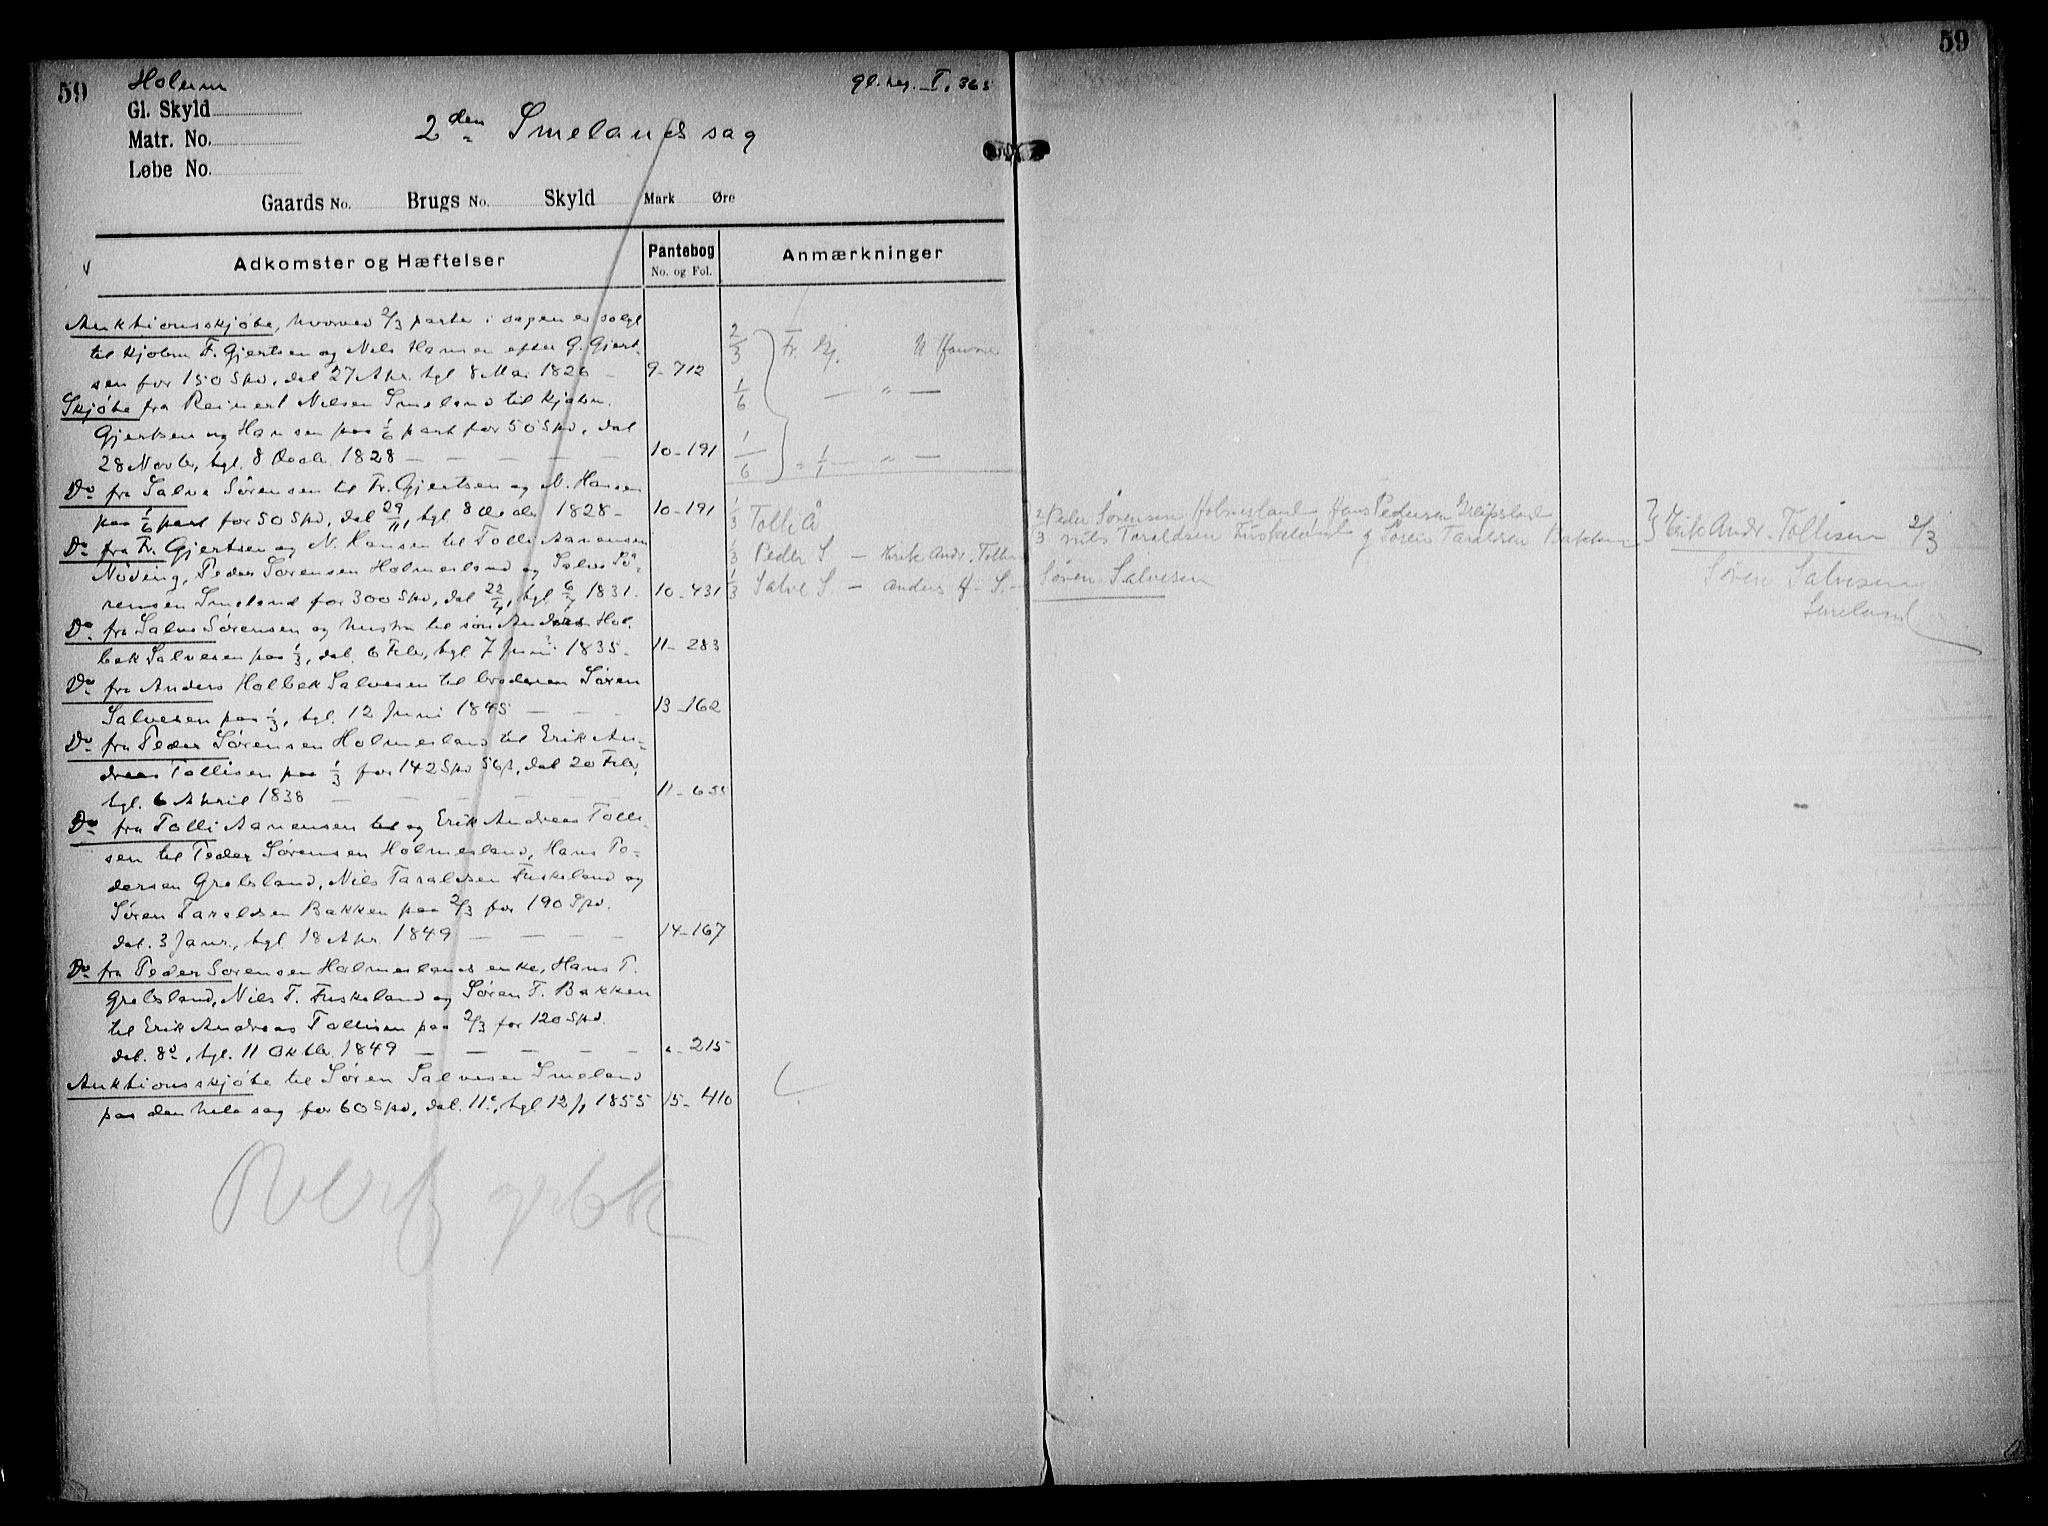 59
Holum
gl. reg. I, 365
Gl. Skyld
2den Smelands sag
Matr. No.
Løbe No.
Gaards No. Brugs No. Skyld Mark Øre
Adkomster og Hæftelser
Pantebog
No. og Fol.
Anmærkninger
Auktionsskjøte, hvorved 2/3 parter i sagen er solgt
til kjøbm F. Gjertsen og Nils Hansen efter G. Gjert-
sen for 150 Spd, dat 27 Apr. tgl 8 Mai 1826 - 9-712
Skjøte fra Reinert Nilsen Smeland til kjøbm.
Gjertsen og Hansen paa 1/6 part for 50 Spd, dat
28 Novbr, tgl. 8 Decbr. 1828 - - - - 10-191
Do fra Salve Sørensen til Fr. Gjertsen og N. Hansen
paa 1/6 part for 50 Spd, dat 29/11, tgl 8 Decbr 1828 - 10-191
Do fra Fr. Gjertsen og N. Hansen til Tolli Aanensen
Nøding, Peder Sørensen Holmesland og Salve Sø-
rensen Smeland for 300 Spd, dat 22/4, tgl 6/7 1831. 10-431
Do fra Salve Sørensen og hustru til søn Anders Hol-
bek Salvesen paa 1/3, dat. 6 Febr, tgl 7 Juni 1835 - 11-283
Do fra Anders Holbek Salvesen til broderen Søren
Salvesen paa 1/3, tgl. 12 Juni 1845 - - - 13-162
Do fra Peder Sørensen Holmesland til Erik An-
dreas Tollisen paa 1/3 for 142 Spd 56 s, dat 20 Febr,
tgl. 6 April 1838 - - - - 11-655
Do fra Tolli Aanensen og Erik Andreas Tolli-
sen til Peder Sørensen Holmesland, Hans Pe-
dersen Grebsland, Nils Taraldsen Fuskeland og
Søren Taraldsen Bakken paa 2/3 for 190 Spd.
dat. 3 Janr., tgl 18 Apr. 1849 - - - - 14-167
Do fra Peder Sørensen Holmeslands enke, Hans P.
Grebsland, Nils T. Fuskeland og Søren T. Bakken
til Erik Andreas Tollisen paa 2/3 for 120 Spd.
dat. 8d, tgl. 11 Oktbr. 1849 - - - - - " - 215
Auktionsskjøte til Søren Salvesen Smeland
paa den hele sag for 60 Spd, dat. 11, tgl 12/1 1855 15-410
2/3 Fr. Gj. N Hansen
1/6 - " -
1/6 1/1 - " -
1/3 Tolli Å
1/3 Peder S - Erik Andr. Tollisen
1/3 Salve S - Anders H. S. -
59
2/3 Peder Sørensen Holmesland Hans Pedersen Greipsland
Nils Taraldsen Fuskeland og Søren Taraldsen Bakken
Søren Salvesen
Erik Andr. Tollisen 2/3
Søren Salvesen
Smeland